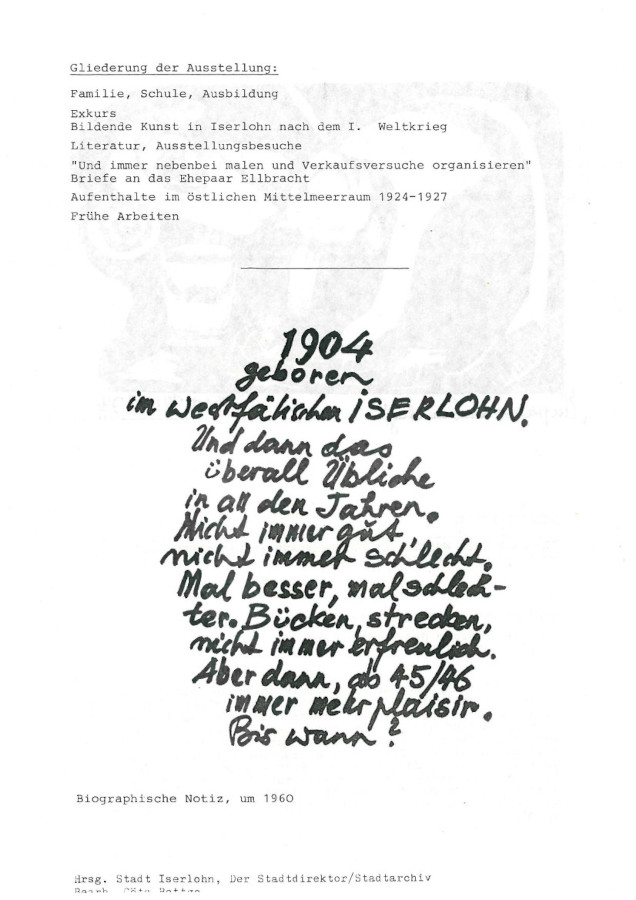 Gliederung der Ausstellung:
Familie, Schule, Ausbildung
Exkurs
Bildende Kunst in Iserlohn nach dem I. Weltkrieg
Literatur, Ausstellungsbesuche
"Und immer nebenbei malen und Verkaufsversuche organisieren"
Briefe an das Ehepaar Ellbracht
Aufenthalte im östlichen Mittelmeerraum 1924-1927
Frühe Arbeiten
1904
geboren
im westfälischen ISERLOHN.
Und dann das
überall Übliche
in all den Jahren.
Nicht immer gut,
nicht immer schlecht.
Mal besser, mal schlech-
ter. Bücken, strecken,
nicht immer erfreulich.
Aber dann, ab 45/46
immer mehr plaisir.
Bis wann?
Biographische Notiz, um 1960
Hrsg. Stadt Iserlohn, Der Stadtdirektor/Stadtarchiv